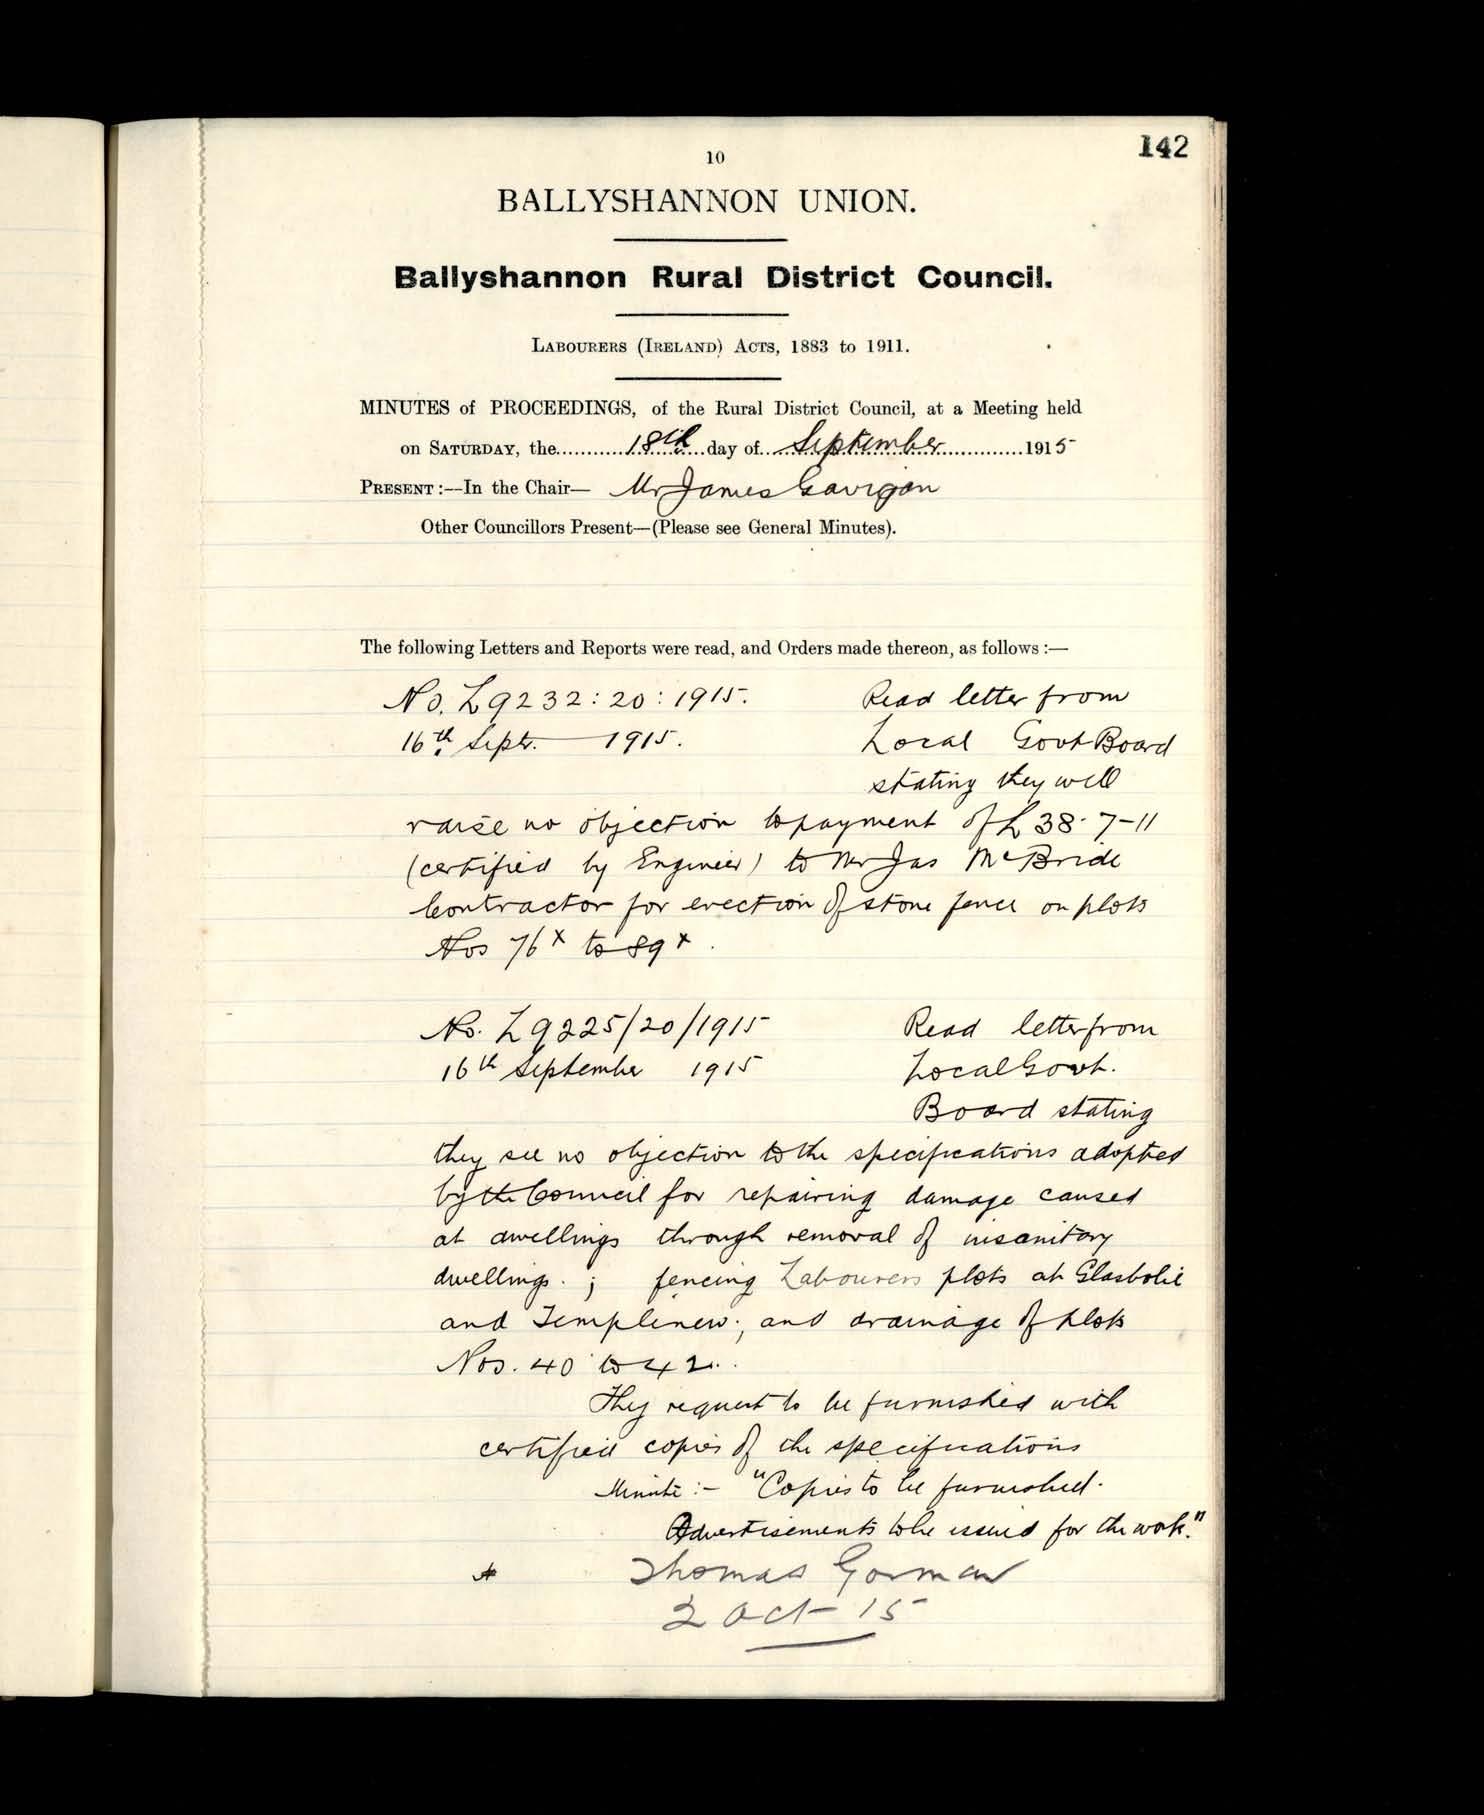 142
10
BALLYSHANNON UNION.
Ballyshannon Rural District Council.
LABOURERS (IRELAND) ACTS, 1883 to 1911.
MINUTES of PROCEEDINGS, of the Rural District Council, at a Meeting held
on SATURDAY, the 18th day of September 1915
PRESENT :—In the Chair— Mr James Gavigan
Other Councillors Present—(Please see General Minutes).
The following Letters and Reports were read, and Orders made thereon, as follows :—
No. L9232:20:1915. Read letter from
16th Sept. 1915. Local Govt Board
stating they will
raise no objection to payment of £38-7-11
(certified by Engineer) to Mr Jas McBride
Contractor for erection of stone fence on plots
Nos 76x to 89x.
No. L9225/20/1915 Read letter from
16th September 1915 Local Govt.
Board stating
they see no objection to the specifications adopted
by the Council for repairing damage caused
at dwellings through removal of insanitary
dwellings. ; fencing Labourers plots at Glasbolie
and Templenew; and drainage of plots
Nos. 40 to 42.
They request to be furnished with
certified copies of the specifications
Minute :- "Copies to be furnished.
Advertisements to be issued for the work."
Thomas Gorman
2 Oct 15